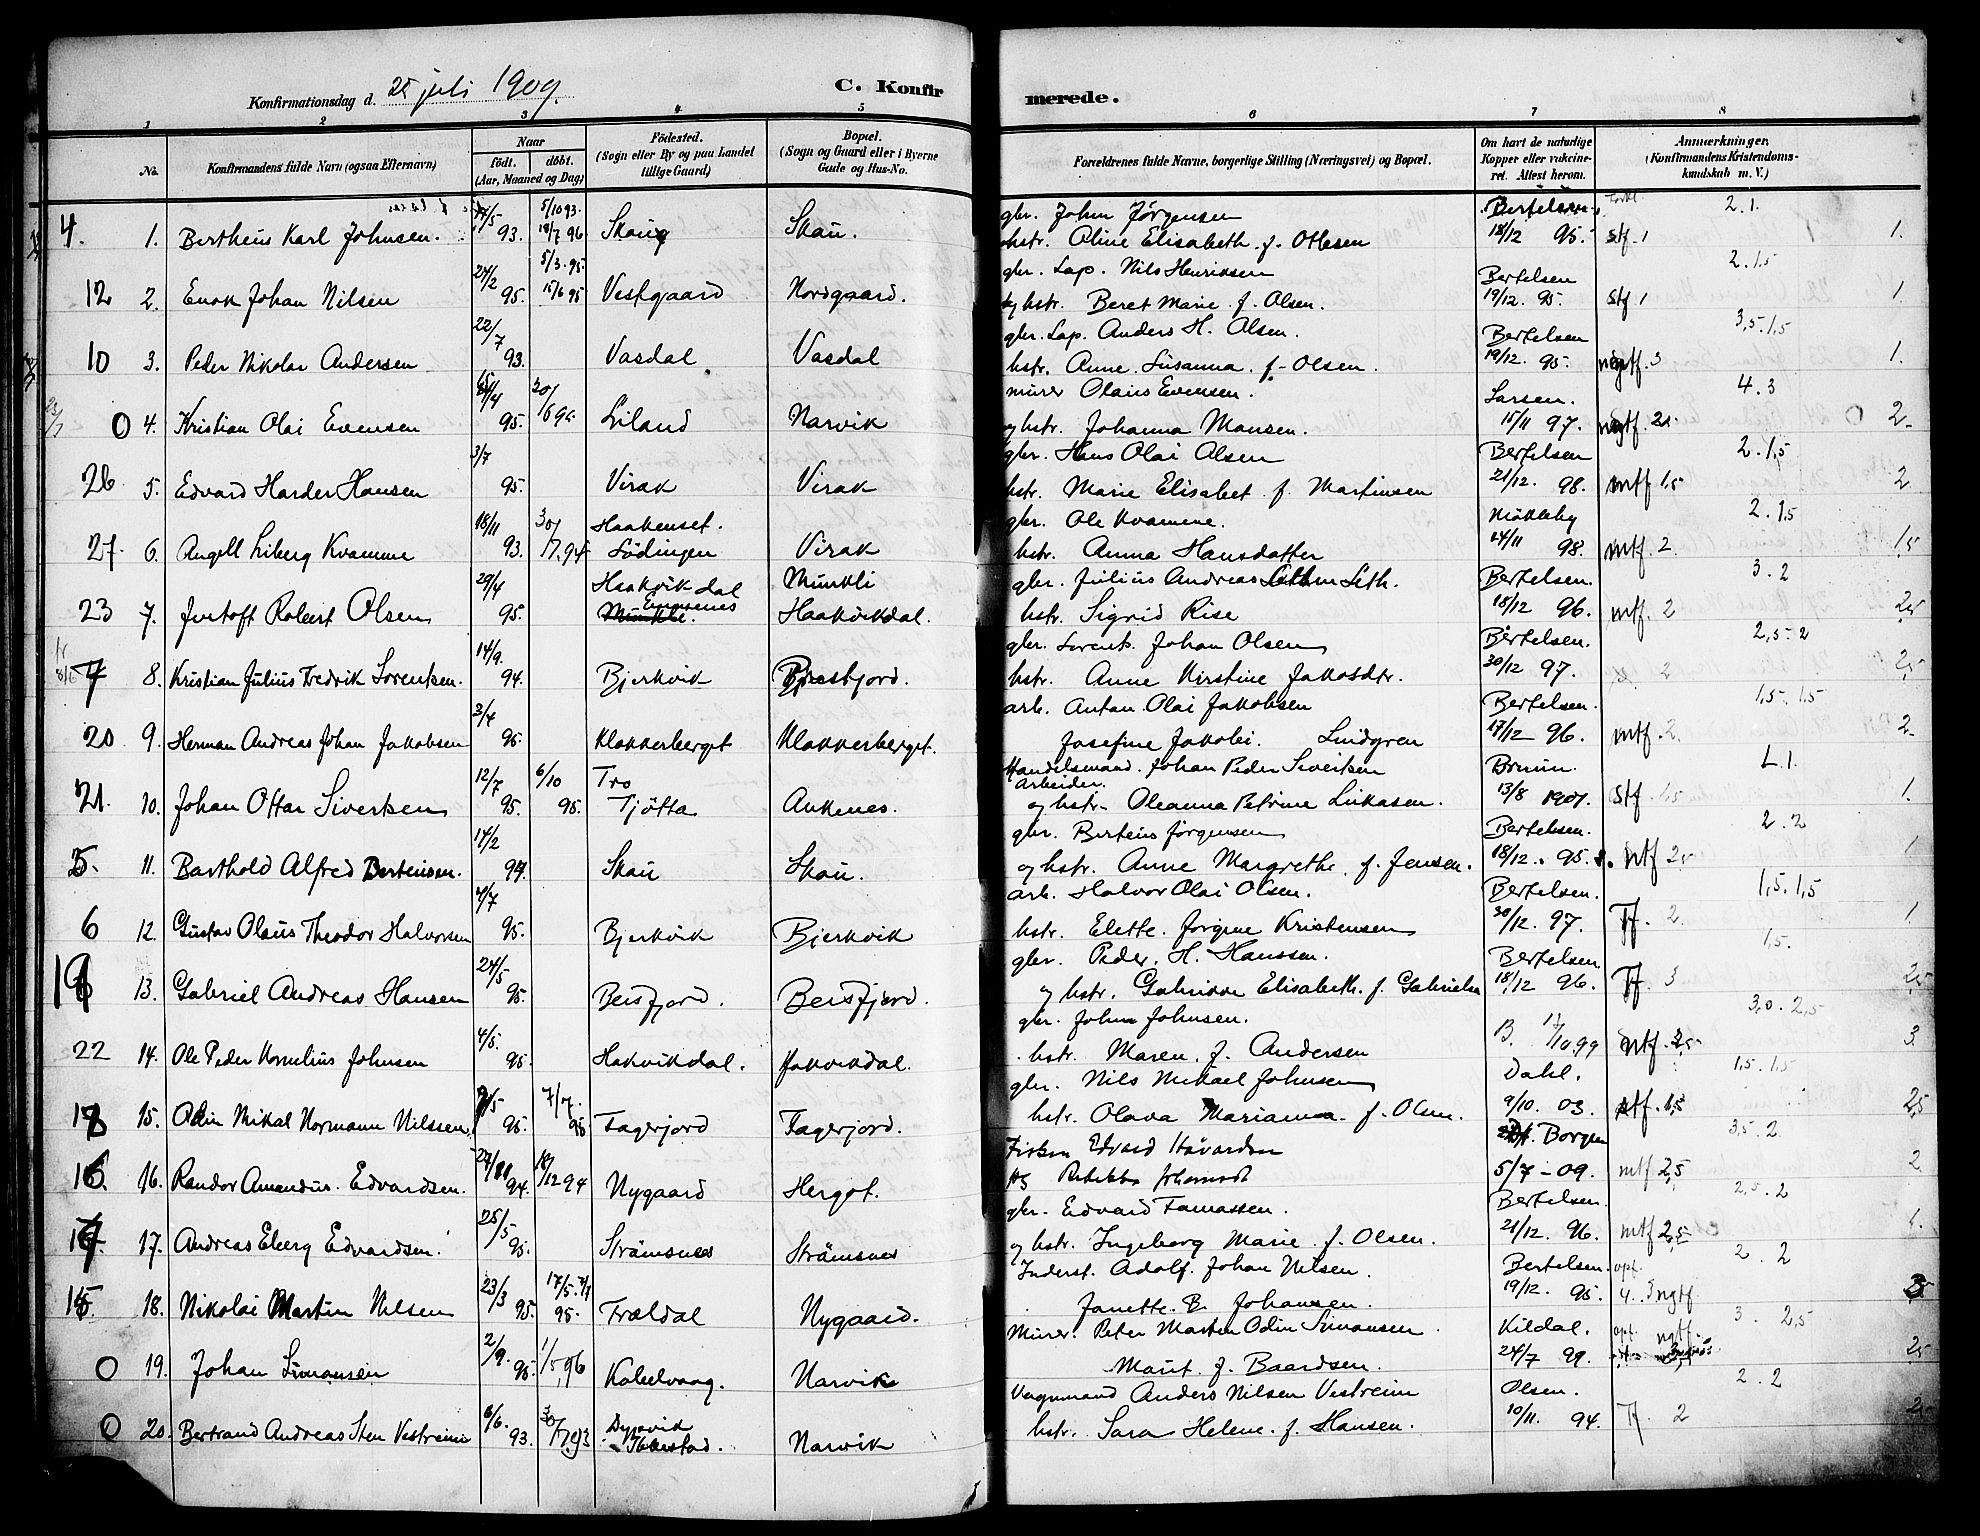 Konfirmationsdag d. 25 juli 1909.
C. Konfirmerede.
1 2 3 4 5 6 7 8
No. Konfirmandens fulde Navn (ogsaa Efternavn)
Naar født. døbt. (Aar, Maaned og Dag)
Fødested. (Sogn eller By og paa Landet tillige Gaard)
Bopæl. (Sogn og Gaard eller i Byerne Gade og Hus-No.
Forældrenes fulde Navne, borgerlige Stilling (Næringsvei) og Bopæl.
Om havt de naturlige Kopper eller vakcineret. Attest herom.
Anmærkninger, (Konfirmandens Kristendomskundskab m. V.)
4. 1. Bertheus Karl Johnsen. 93. 5/10 93. 18/7 96 Skaug Skau. gbr. John Jørgensen Bertelsen 2.1.
hstr. Aline Elisabeth f. Ottesen 18/12 95. Stf 1 1.
12 2. Enok Johan Nilsen 24/2 95. 5/3 95 15/6 95 Vestgaard Nordgaard. gbr. Lap. Nils Henriksen Bertelsen 2.1,5
og hstr. Beret Marie f. Olsen. 19/12. 95. Stf 1 1.
10 3. Peder Nikolai Andersen 22/7 93. Vasdal Vasdal gbr. Lap. Anders H. Olsen. Bertelsen 3,5.1,5
hstr. Anne Susanna f. Olsen. 19/12. 95. 3 1.
0 4. Kristian Olai Evensen 95. Liland Narvik murer Olaus Evensen. Larsen. 4.3
og hstr. Johanna Monsen. 15/11 97. 2.
26 5. Edvard Harder Hansen 3/7 95. Virak Virak gbr. Hans Olai Olsen Bertelsen 2.1,5
hstr. Marie Elisabet f. Martinsen 21/12. 98. mtf 1,5 2
27. 6. Angell Liberg Kvamme 18/11 93. 30/7 94 Haakenset. Lødingen Virak gbr. Ole Kvamme. Møkleby 2.1,5
hstr. Anna Hansdatter 24/11 98. mtf. 2 1,5
23 7. Jentoft Robert Olsen 29/4 95. Haakvik dal Emmenes Munkli Haakvikdal. gbr. Julius Andreas Seth. Bertelsen. 3.2
hstr. Sigrid Rise 18/12 96. mtf. 2 2,5
7 8. Kristian Julius Fredrik Lorentsen. 14/9. 94. Bjerkvik Beisfjord. gbr. Lorents Johan Olsen Bertelsen. 2,5.2
hstr. Anne Kirstine Jakobsdtr. 30/12 97. 2 2,5
20 9. Herman Andreas Johan Jakobsen 3/4 95. Klokkerberget Klokkerberget. arb. Anton Olai Jakobsen Bertelsen. 1,5. 1,5
Josefine Jakobi. Lindgren 17/12 96. mtf. 2. 2.
21. 10. Johan Ottar Sivertsen 12/7 95. 6/10 95. Tro Tjötta Ankenes. Handelsmand. Johan Peder Sivertsen Bruun. 1.1.
Arbeider. og hstr. Oleanna Petrine Lukasen. 13/8 1901. Stf 1,5 1.
5. 11. Barthold Alfred Berteusen. 14/2 94. Skau Skau. gbr. Berteus Jørgensen Bertelsen. 2.2
og hstr. Anne Margrethe f. Jensen. 18/12. 95. mtf 2,5 1
6 12. Gustav Olaus Theodor Halvorsen 4/7 95. Bjerkvik Bjerkvik arb. Halvor Olai Olsen. Bertelsen. 1,5.1,5
hstr. Elette Jørgine Kristensen 30/12. 97. Tf. 2. 1.
13. Gabriel Andreas Hansen 24/5 95. Beisfjord. Beisfjord. gbr. Peder H. Hanssen. Bertelsen 1,5.
og hstr. Gabrikke Elisabeth f. Gabrielsen 18/12 96. Tf 3 2,5
22 14. Ole Peder Kornelius Johnsen 4/5. 95. Hakvikdal. Hakvikdal. gbr. John Johnsen. 3,0. 2,5
hstr. Maren f. Andersen B. 99 mtf. 3.
15. Odin Mikal Normann Nilssen 95. 7/7. 95 Fagerjord Fagerjord. gbr. Nils Mikael Johnsen Dahl. 1,5. 1,5
hstr. Olava Marianna f. Olsen. 9/10. 03. 1,5 2,5
16. 16. Randor Amandus Edvardsen. 94. 18/12 94 Nygaard Hergot. Edvard Håvardsen Borgen 3,5. 2.
5/7 - 09. mtf 2,5 2.
17. Andreas Eberg Edvardsen. 25/5 95. Strømsnes Strømsnes gbr. Edvard Tomassen. Bertelsen 2,5. 2
og hstr. Ingeborg Marie f. Olsen. 21/12. 96. mtf 2,5 1.
15 18. Nikolai Martin Nilsen 23/3 95. 17/5. 95. Træældal Nygaard. Inderst. Adolf Johan Nilsen. Bertelsen. opf. 2. 2
Janette B. Johansen. 19/12. 95. ngtf.
0 19. Johan Simonsen 2/9. 95. 1/5 96 Kabelvaag. Narvik Murer. Peter Martin Odin Simonsen Kildal. opf. ngtf. 3. 2,5
Marit f. Baardsen. 24/7 99. 2,5
0 20. Bertrand Andreas Sten Vestreim 6/6. 93. 30/7 93 Dyrøvik Ibbestad. Narvik Vognmand Anders Nilsen Vestreim Olsen. 2.2
hstr. Sara Helene f. Hansen. 10/11. 94. Tf. 2